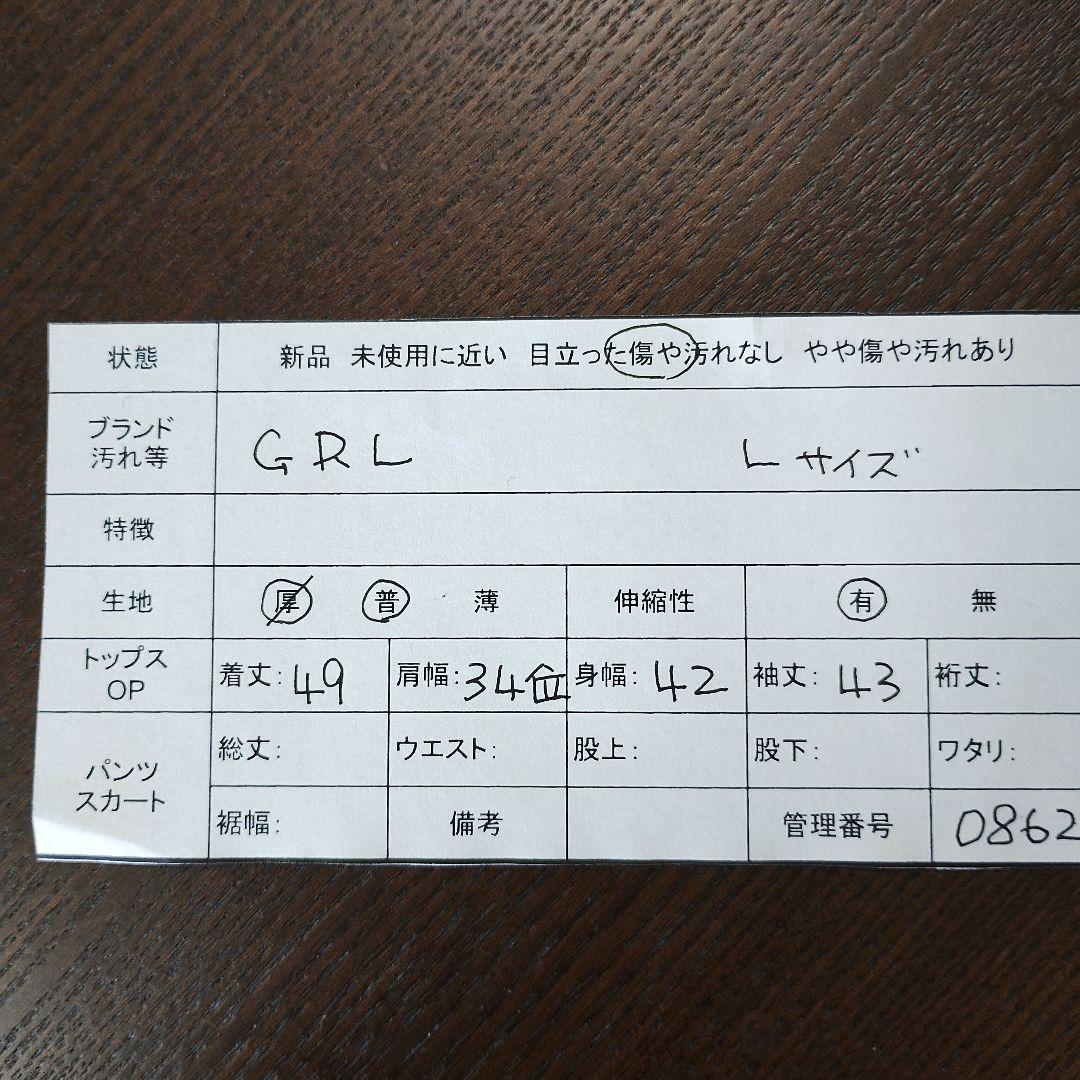 状態 新品 未使用に近い 目立った傷や汚れなし やや傷や汚れあり
ブランド
汚れ等 GRL Lサイズ
特徴
生地 厚 普 薄 伸縮性 有 無
トップス
OP 着丈:49 肩幅:34位 身幅:42 袖丈:43 裄丈:
パンツ
スカート 総丈: ウエスト: 股上: 股下: ワタリ:
裾幅: 備考 管理番号 0862